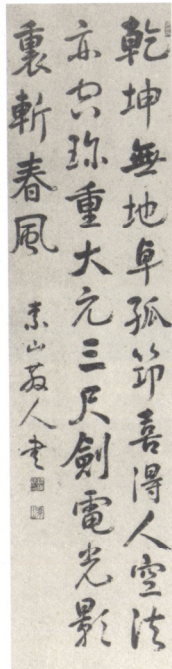 乾坤無地卓孤筇喜得人空法
亦空珎重大元三尺劍電光影
裏斬春風
素山散人書